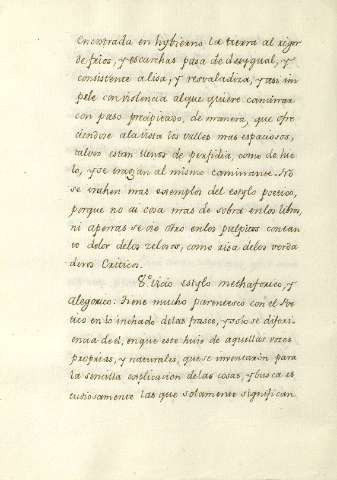 encontrada en hybierno la tierra al rigor
de frios, y escarchas pasa de desygual, y
consistente a lisa, y resvaladiza, y asi im
pele con violencia al que quiere caminar
con paso precipitado, de manera, que ofre
ciendose a la vista los valles mas espaciosos,
talvez estan llenos de perfidia, como de hie
lo, y se tragan al mismo caminante. No
se incluyen mas exemplos del estylo poetico,
porque no ai cosa mas de sobra en los libros,
ni apenas se oie otro en los pulpitos con tan
to dolor de los zelosos, como risa de los verda
deros Criticos.
8.º vicio estylo methaforico, y
alegorico: tiene mucho parentesco con el Po
etico en lo inchado de las frases, y solo se diferen
cia de el, en que este huie de aquellas vozes
proprias, y naturales, que se inventaron para
la sencilla explicacion de las cosas, y busca es
tudiosamente las que solamente significan